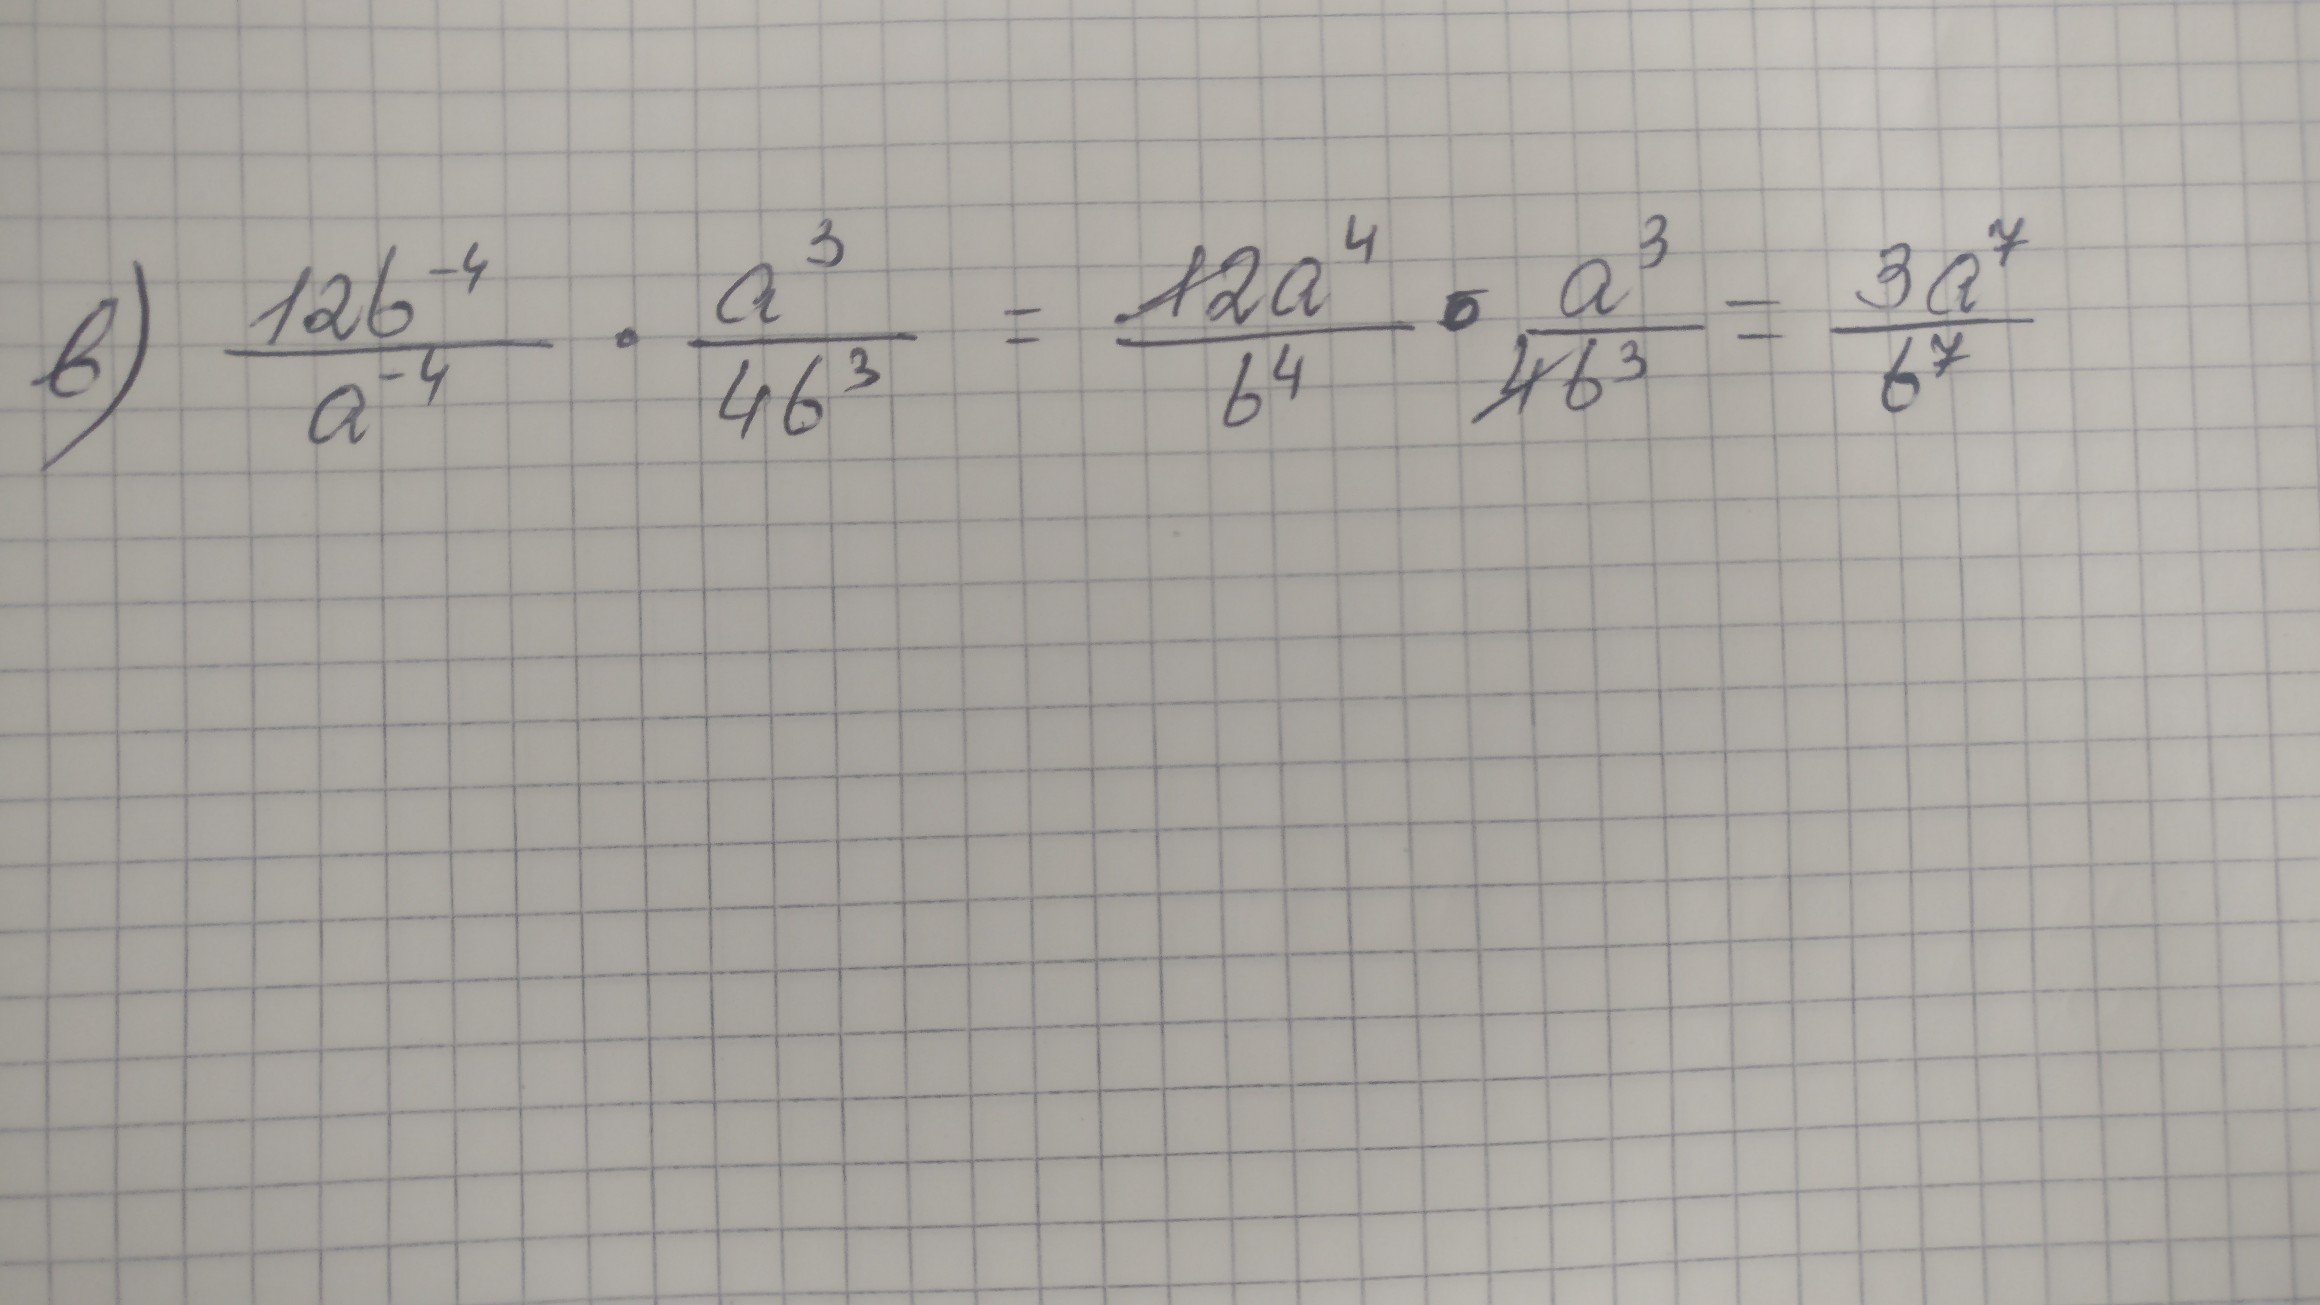 в) \frac{12b^{-4}}{a^{-4}} \cdot \frac{a^3}{4b^3} = \frac{12a^4}{b^4} \cdot \frac{a^3}{4b^3} = \frac{3a^7}{b^7}